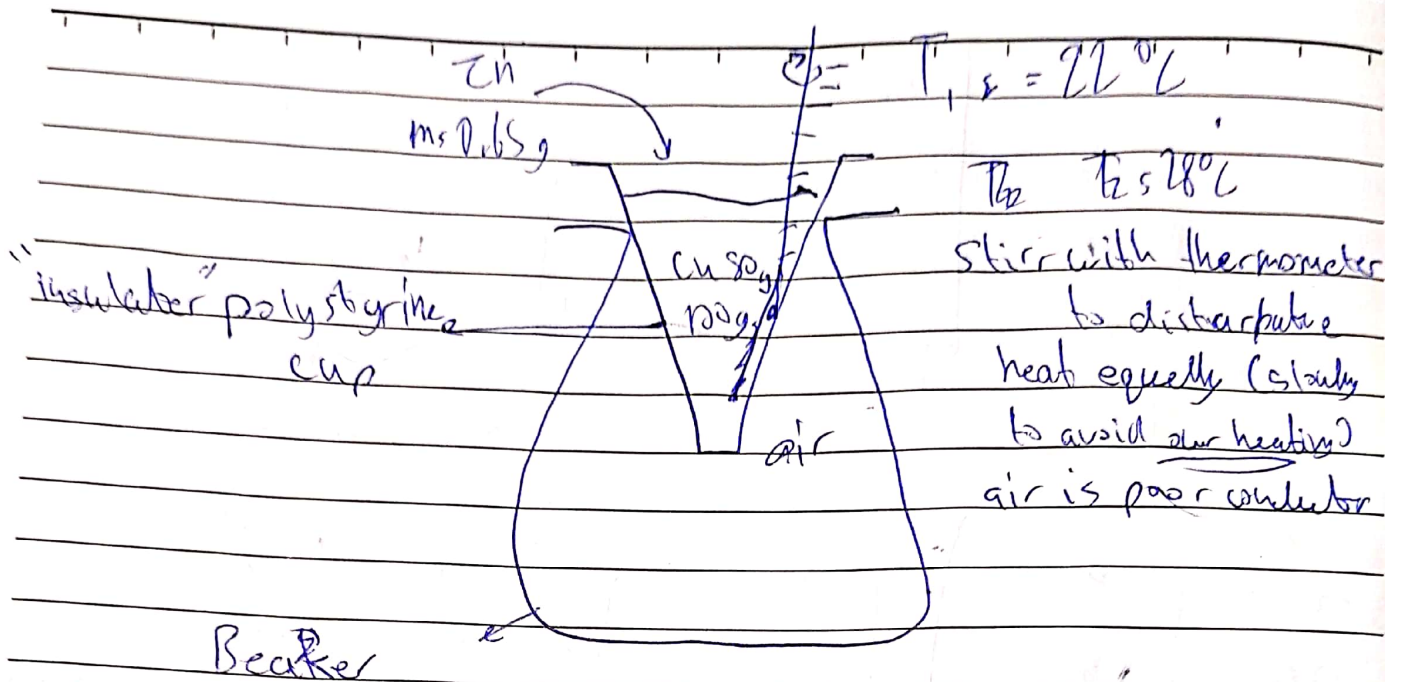 Zn
m=0.65g
T1 = 22°C
T2 = 28°C
"insulater" polystyrine
cup
CuSO4
100g
air
stirr with thermometer
to distarbutve
heat equelly (slowly
to avoid over heating)
air is poor conductor
Beaker